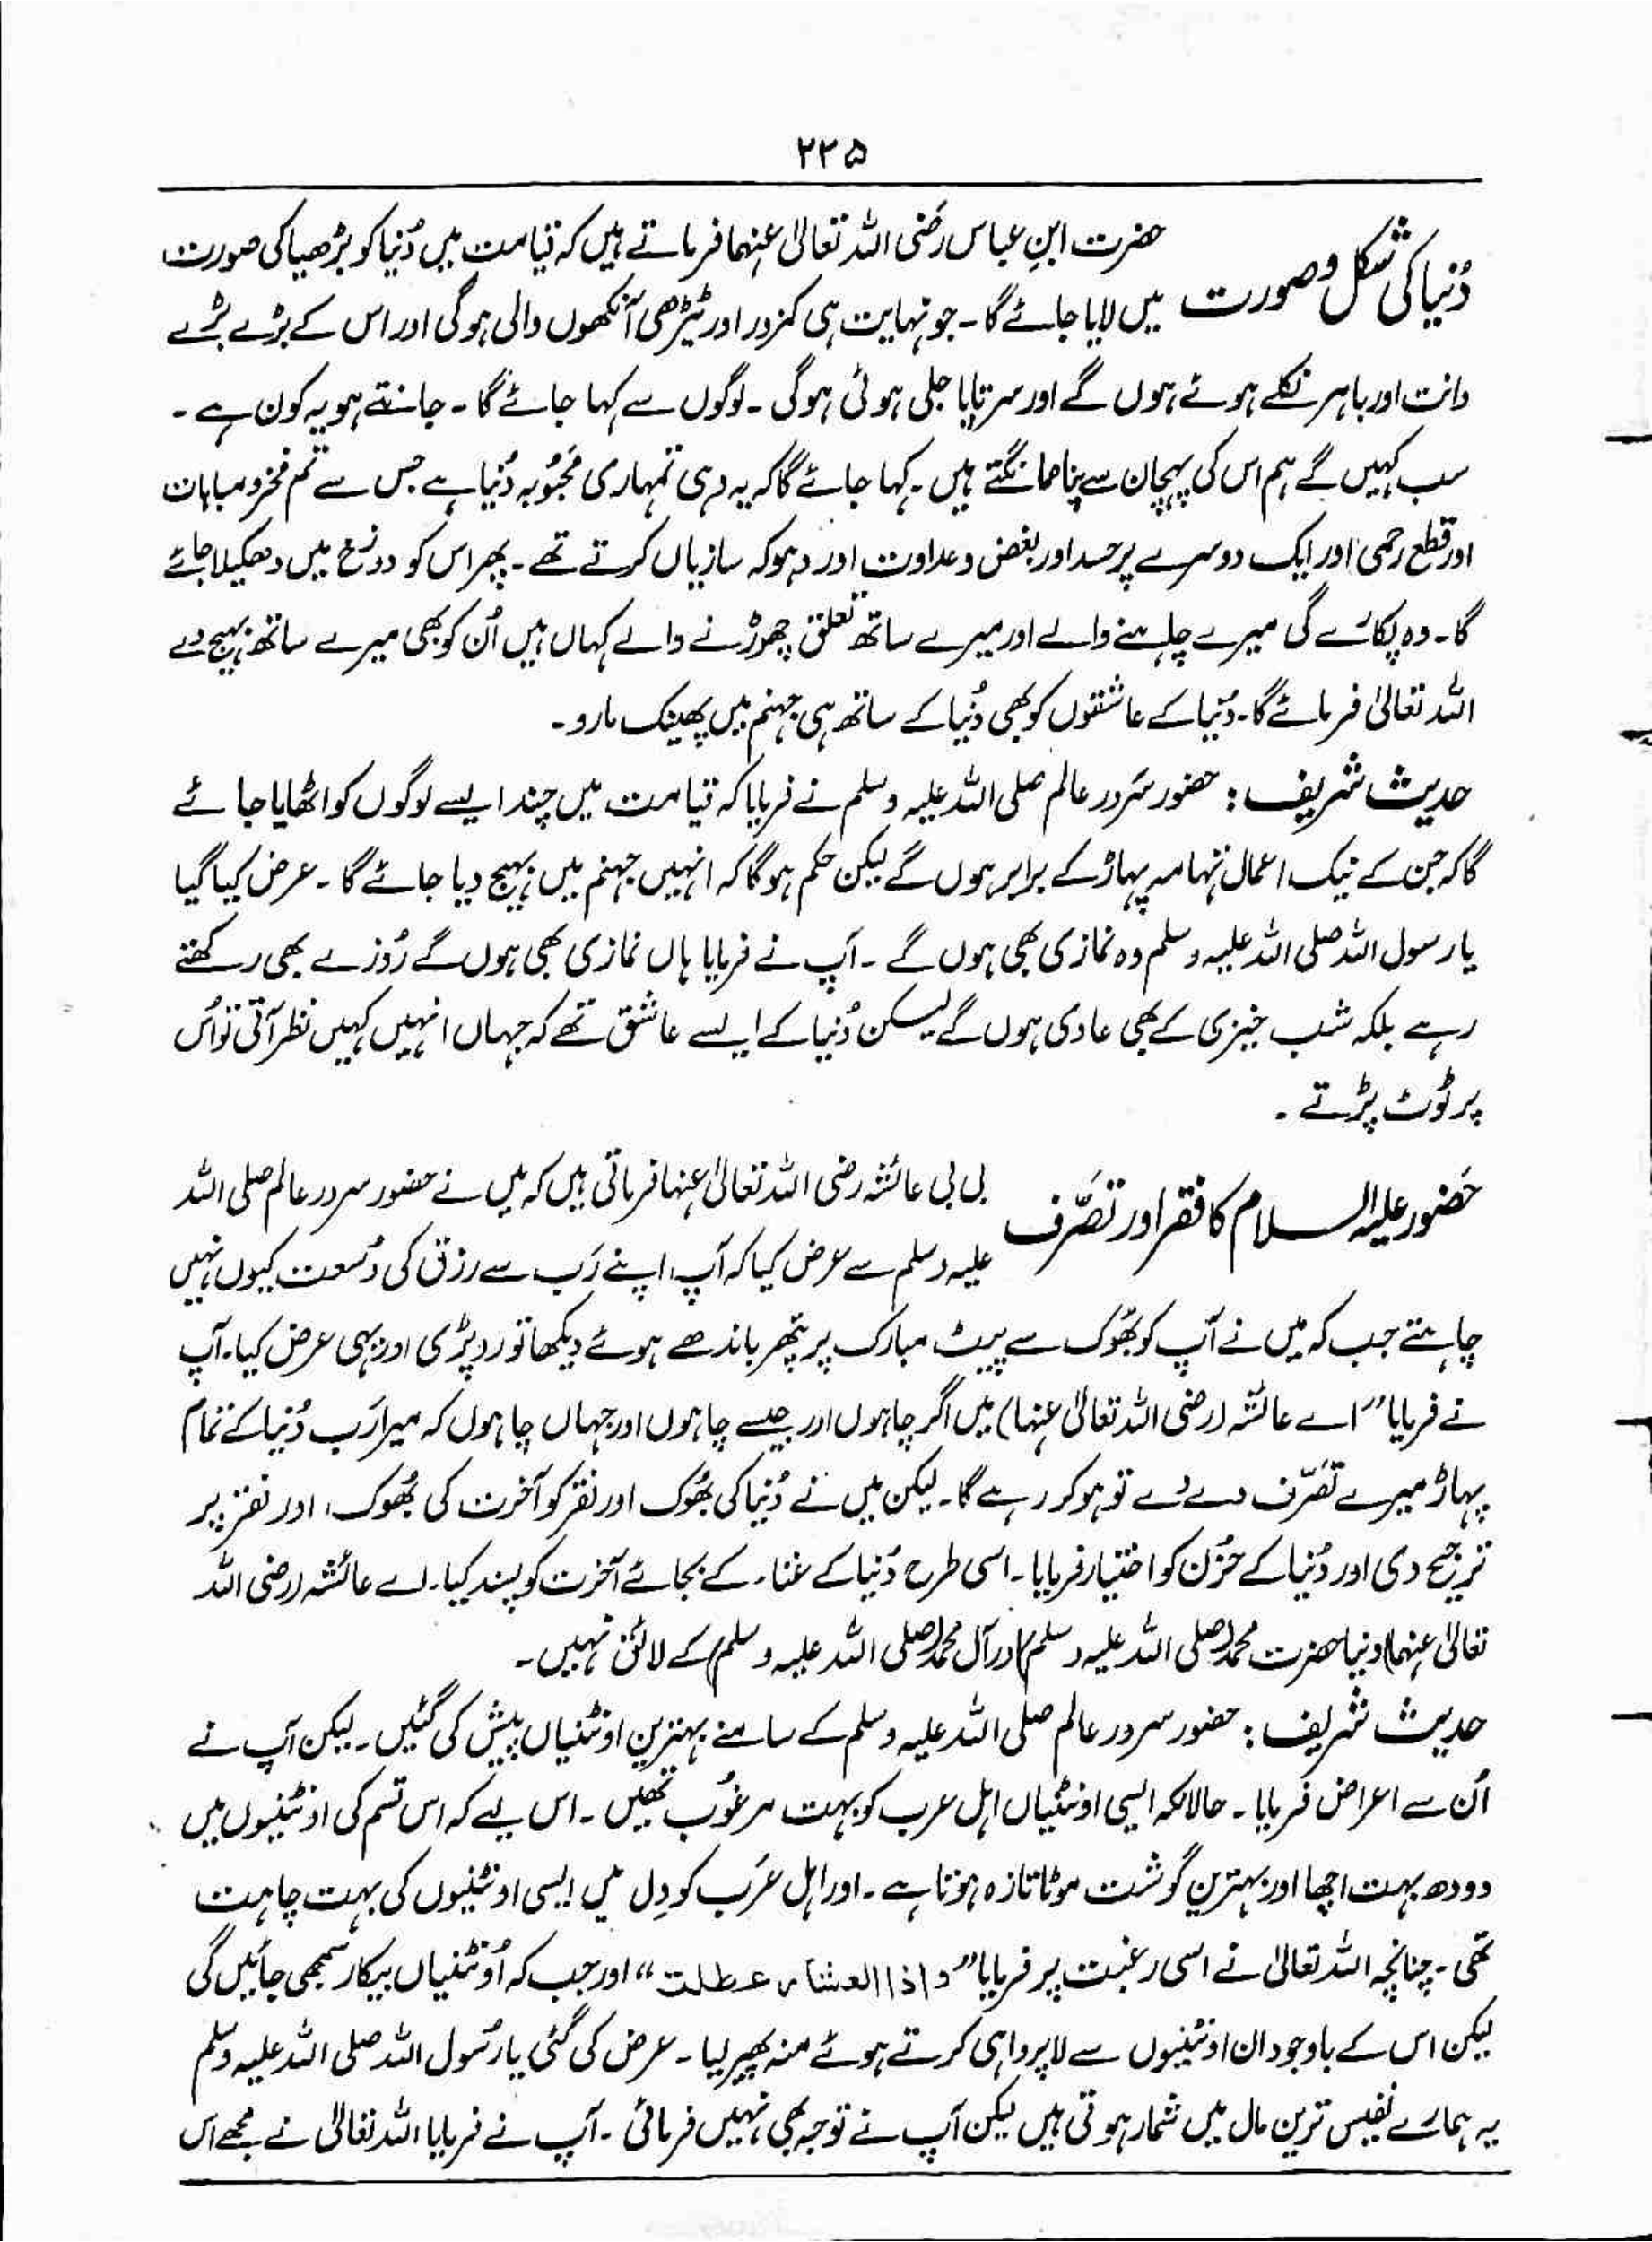 ۲۲۵
دُنیا کی شکل و صورت
حضرت ابنِ عباس رَضی اللہ تعالیٰ عنہما فرماتے ہیں کہ قیامت میں دُنیا کو بڑھیا کی صورت
میں لایا جائے گا۔ جو نہایت ہی کمزور اور ٹیڑھی آنکھوں والی ہوگی اور اس کے بڑے بڑے
دانت اور باہر نکلے ہوئے ہوں گے اور سر تا پا جلی ہوئی ہوگی۔ لوگوں سے کہا جائے گا۔ جانتے ہو یہ کون ہے۔
سب کہیں گے ہم اس کی پہچان سے پناہ مانگتے ہیں۔ کہا جائے گا کہ یہ وہی تمہاری مَحبُوبہ دُنیا ہے جس سے تم فخر و مباہات
اور قطع رحمی اور ایک دوسرے پر حسد اور بغض و عداوت اور دہوکہ سازیاں کرتے تھے۔ پھر اس کو دوزخ میں دھکیلا جائے
گا۔ وہ پکارے گی میرے چاہنے والے اور میرے ساتھ تعلق جوڑنے والے کہاں ہیں اُن کو بھی میرے ساتھ بہیج دے
اللہ تعالیٰ فرمائے گا۔ دُنیا کے عاشقوں کو بھی دُنیا کے ساتھ ہی جہنم میں پھینک مارو۔
حدیث شریف : حضور سَرور عالم صلی اللہ علیہ وسلم نے فرمایا کہ قیامت میں چند ایسے لوگوں کو اٹھایا جائے
گا کہ جن کے نیک اعمال تہامہ پہاڑ کے برابر ہوں گے لیکن حکم ہوگا کہ انہیں جہنم میں بہیج دیا جائے گا۔ عرض کیا گیا
یا رسول اللہ صلی اللہ علیہ وسلم وہ نمازی بھی ہوں گے۔ آپ نے فرمایا ہاں نمازی بھی ہوں گے رُوزے بھی رکھتے
رہے بلکہ شب خیزی کے بھی عادی ہوں گے لیکن دُنیا کے ایسے عاشق تھے کہ جہاں انہیں کہیں نظر آتی تو اُس
پر ٹوٹ پڑتے۔
حَضور علیہ السلام کا فقر اور تصَرّف
بی بی عائشہ رضی اللہ تعالیٰ عنہا فرماتی ہیں کہ میں نے حضور سرور عالم صلی اللہ
علیہ وسلم سے عرض کیا کہ آپ اپنے رَب سے رزق کی وُسعت کیوں نہیں
چاہتے جب کہ میں نے آپ کو بھُوک سے پیٹ مبارک پر پتھر باندھے ہوئے دیکھا تو رو پڑی اور یہی عرض کیا۔ آپ
نے فرمایا "اے عائشہ (رضی اللہ تعالیٰ عنہا) میں اگر چاہوں اور جیسے چاہوں اور جہاں چاہوں کہ میرا رَب دُنیا کے تمام
پہاڑ میرے تصَرّف دے دے تو ہو کر رہے گا۔ لیکن میں نے دُنیا کی بھُوک اور فقر کو آخرت کی بھُوک، اور فقر پر
ترجیح دی اور دُنیا کے حُزن کو اختیار فرمایا۔ اسی طرح دُنیا کے غناء کے بجائے آخرت کو پسند کیا۔ اے عائشہ (رضی اللہ
تعالیٰ عنہا) دنیا حضرت محمد (صلی اللہ علیہ وسلم) اور آل محمد (صلی اللہ علیہ وسلم) کے لائق نہیں۔
حدیث شریف : حضور سرور عالم صلی اللہ علیہ وسلم کے سامنے بہترین اونٹنیاں پیش کی گئیں۔ لیکن آپ نے
اُن سے اعراض فرمایا۔ حالانکہ ایسی اونٹنیاں اہل عرب کو بہت مرغُوب تھیں۔ اس لیے کہ اس قسم کی اونٹنیوں میں
دودھ بہت اچھا اور بہترین گوشت موٹا تازہ ہوتا ہے۔ اور اہل عَرب کو دِل میں ایسی اونٹنیوں کی بہت چاہت
تھی۔ چنانچہ اللہ تعالیٰ نے اسی رغبت پر فرمایا "واذا العشار عطلت" اور جب کہ اُونٹنیاں بیکار سمجھی جائیں گی
لیکن اس کے باوجود ان اونٹنیوں سے لاپرواہی کرتے ہوئے منہ پھیر لیا۔ عرض کی گئی یا رسُول اللہ صلی اللہ علیہ وسلم
یہ ہمارے نفیس ترین مال میں شمار ہوتی ہیں لیکن آپ نے توجہ بھی نہیں فرمائی۔ آپ نے فرمایا اللہ تعالیٰ نے مجھے اس